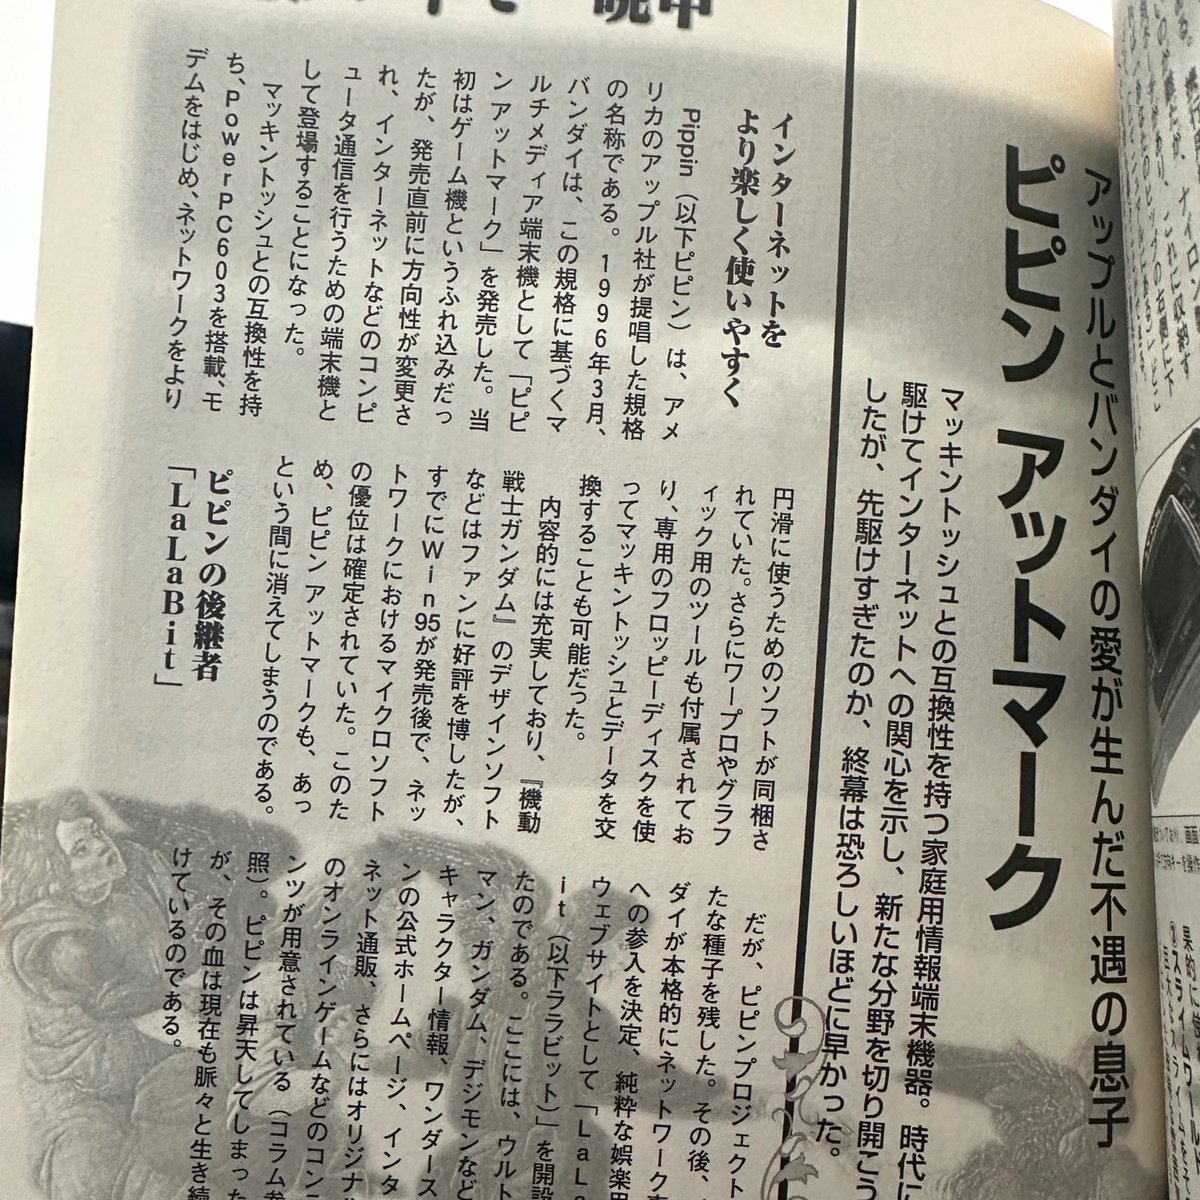 アップルとバンダイの愛が生んだ不遇の息子
ピピン アットマーク
マッキントッシュとの互換性を持つ家庭用情報端末機器。時代に
駆けてインターネットへの関心を示し、新たな分野を切り開こう
したが、先駆けすぎたのか、終幕は恐ろしいほどに早かった。
インターネットを
より楽しく使いやすく
Pippin（以下ピピン）は、アメ
リカのアップル社が提唱した規格
の名称である。1996年3月、
バンダイは、この規格に基づくマ
ルチメディア端末機として「ピピ
ン アットマーク」を発売した。当
初はゲーム機というふれ込みだっ
たが、発売直前に方向性が変更さ
れ、インターネットなどのコンピ
ュータ通信を行うための端末機と
して登場することになった。
マッキントッシュとの互換性を持
ち、PowerPC603を搭載、モ
デムをはじめ、ネットワークをより
円滑に使うためのソフトが同梱さ
れていた。さらにワープロやグラフ
ィック用のツールも付属されてお
り、専用のフロッピーディスクを使
ってマッキントッシュとデータを交
換することも可能だった。
内容的には充実しており、『機動
戦士ガンダム』のデザインソフト
などはファンに好評を博したが、
すでにWin95が発売後で、ネッ
トワークにおけるマイクロソフト
の優位は確定されていた。このた
め、ピピン アットマークも、あっ
という間に消えてしまうのである。
ピピンの後継者
「LaLaBit」
だが、ピピンプロジェクト
たな種子を残した。その後、
ダイが本格的にネットワーク
への参入を決定、純粋な娯楽用
ウェブサイトとして「LaLa
it（以下ララビット）」を開設
たのである。ここには、ウルト
マン、ガンダム、デジモンなど
キャラクター情報、ワンダース
ンの公式ホームページ、インタ
ネット通販、さらにはオリジナル
のオンラインゲームなどのコンテ
ンツが用意されている（コラム参
照）。ピピンは昇天してしまった
が、その血は現在も脈々と生き続
けているのである。